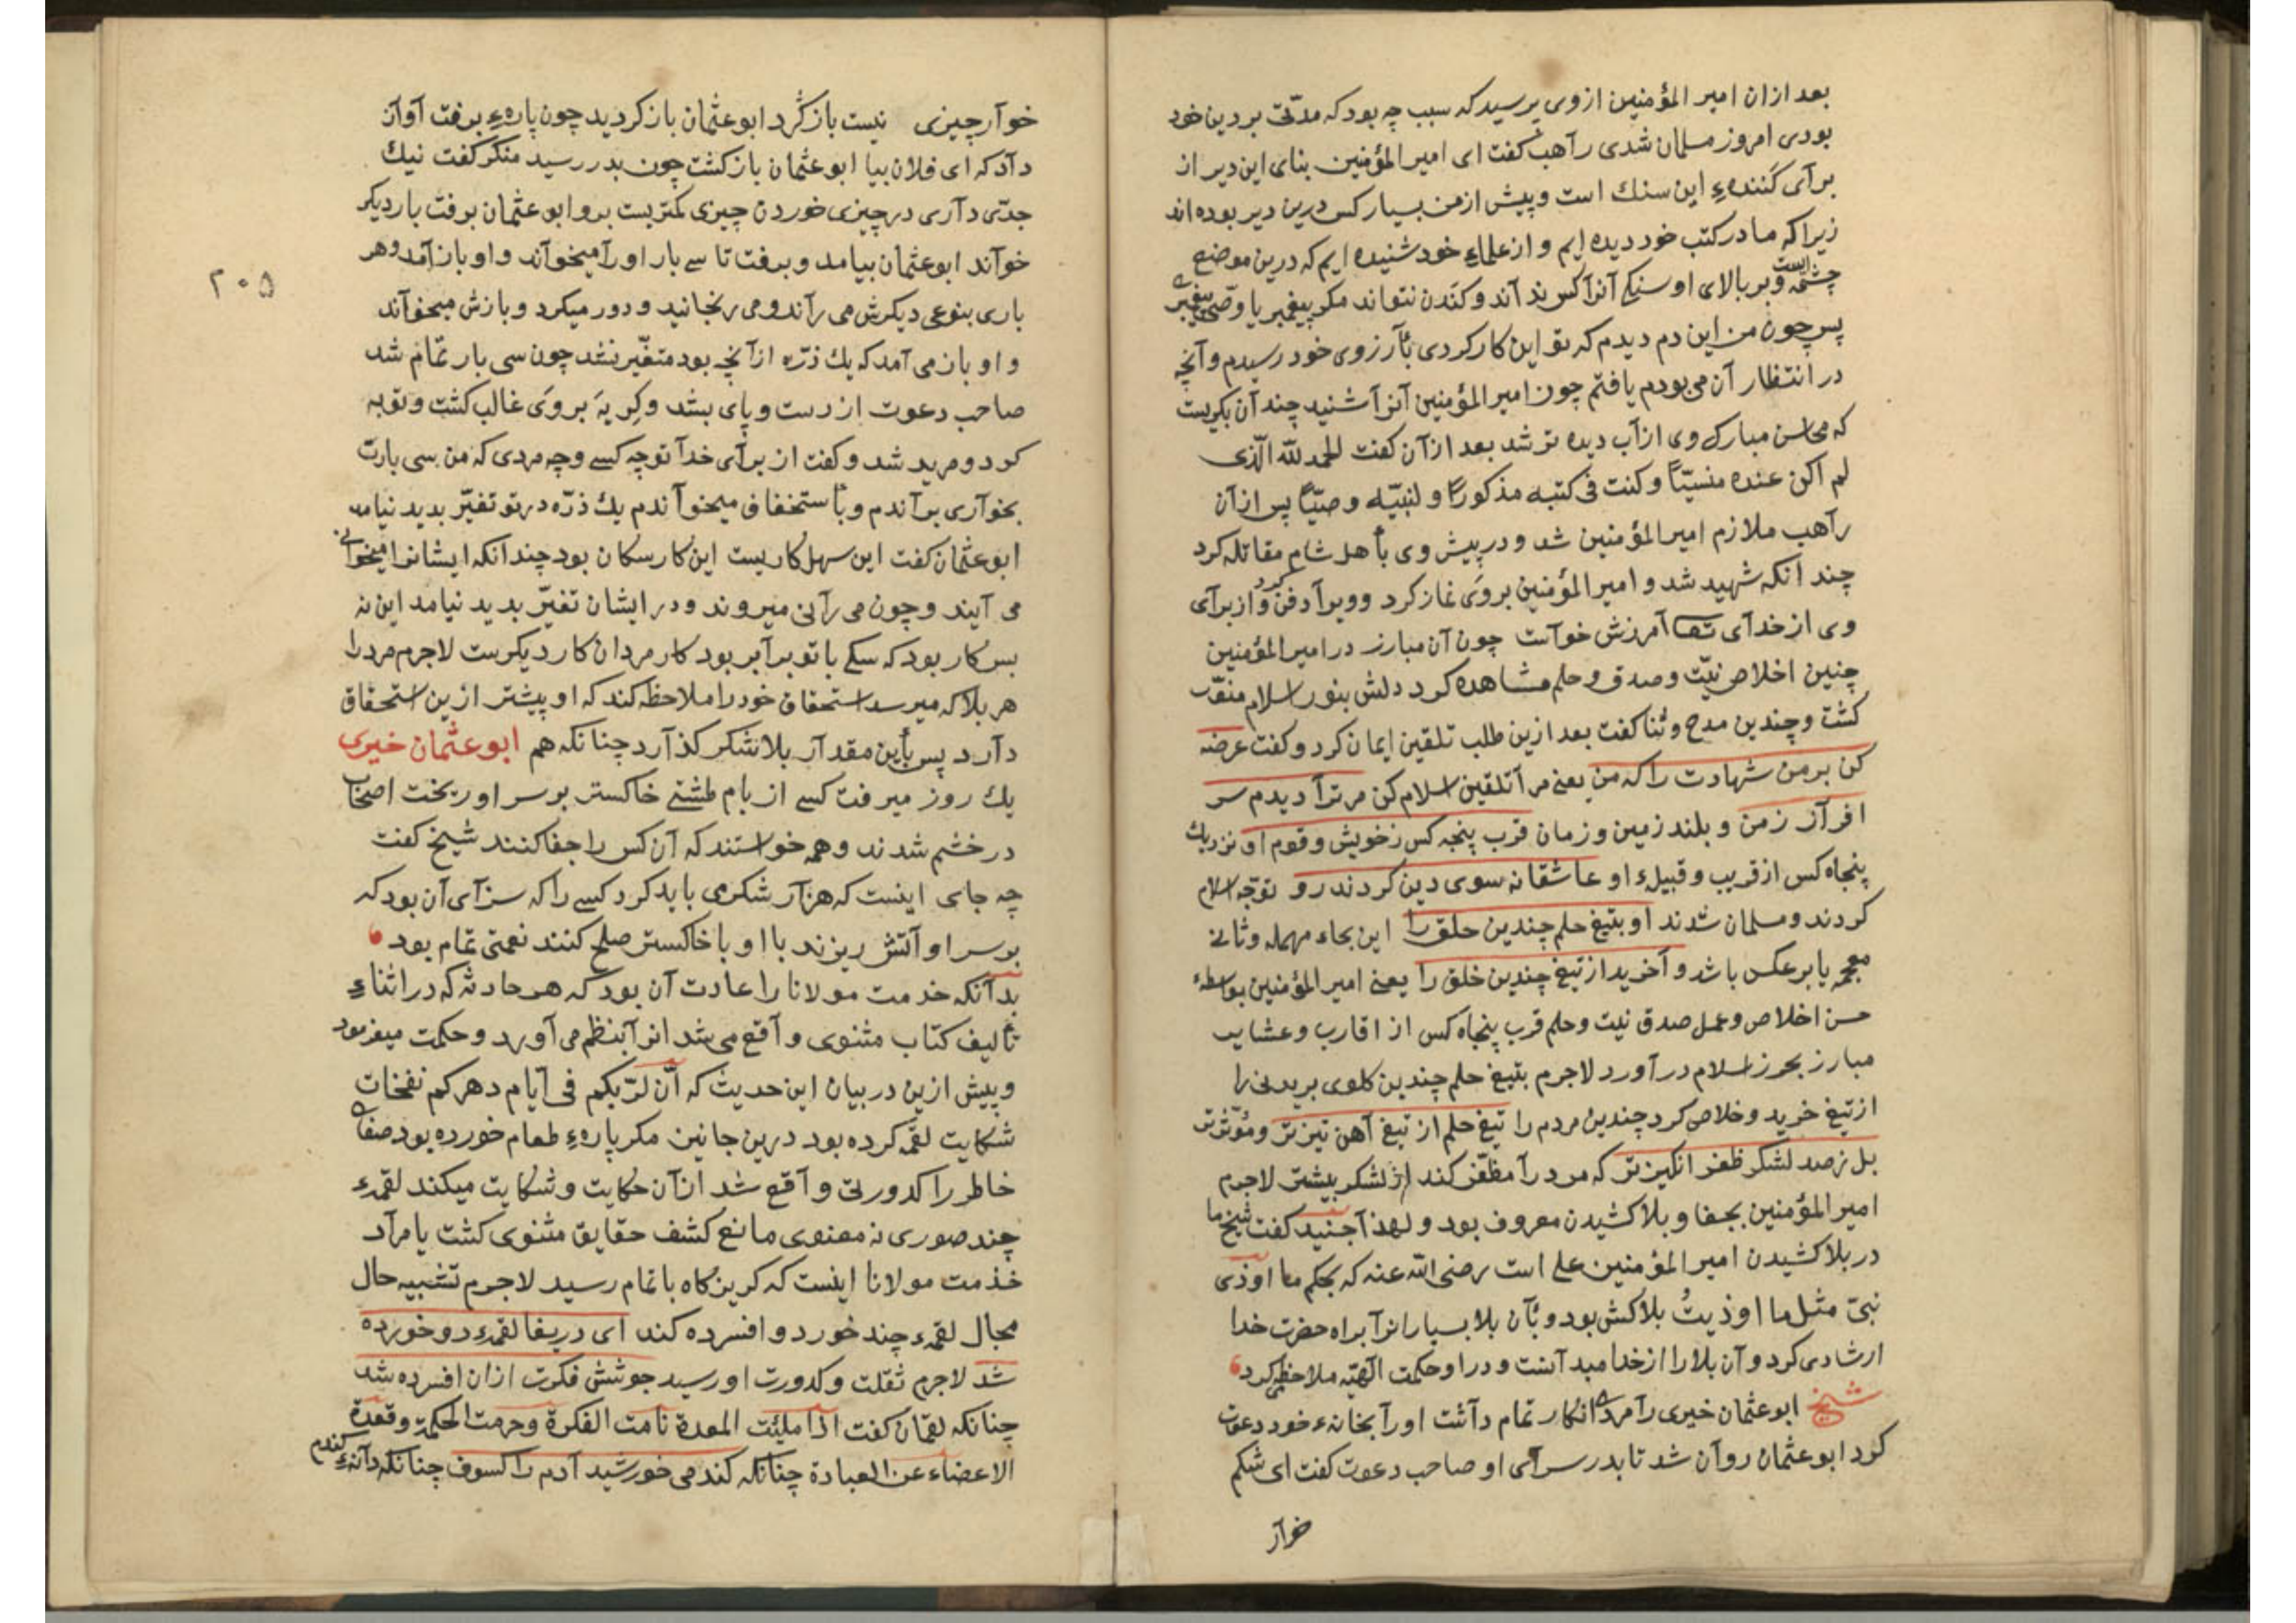 بعد ازان امیر المؤمنین ازوی پرسید که سبب چه بود که مدّتی بر دین خود
بودی امروز مسلمان شدی رآهب کفت ای امیر المؤمنین بنای این دیر از
برآی کَنندهٔ این سنك است وپیش ازمن بسیار کس درین دیر بوده اند
زیرا که ما در کتب خود دیده ایم و از علماء خود شنیده ایم که درین موضع
چشمه است وبر بالای او سنکی آنرآ کس نداند وکندن نتواند مکر پیغمبر یا وصّی پیغمبری
پس چون من این دم دیدم که تو این کار کردی بآرزوی خود رسیدم وآنچه
در انتظار آن می بودم یافتم چون امیر المؤمنین آنرآ شنید چندآن بکریست
که محاسن مبارك وی ازآب دیده تر شد بعد ازآن کفت الحمد لله الّذی
لم اکن عنده منسیّاً وکنت فی کتبه مذکوراً و لنبیّه وصیّاً پس ازآن
رآهب ملازم امیر المؤمنین شد ودر پیش وی بأهل شام مقاتله کرد
چند آنکه شهید شد و امیر المؤمنین بروی نماز کرد وویرآ دفن کرد واز برآی
وی از خدآی تعا آمرزش خوآست چون آن مبارز در امیر المؤمنین
چنین اخلاص نیّت وصدق وحلم مشاهده کرد دلش بنور اسلام منوّر
کشت وچندین مدح وثنا کفت بعد ازین طلب تلقین ایمان کرد وکفت عرضه
کن بر من شهادت را که من یعنی مرآ تلقین اسلام کن مر ترآ دیدم سر
افرآز زمن و بلند زمین وزمان قرب پنجه کس زخویش وقوم او نزدیك
پنجاه کس از قریب وقبیلهٔ او عاشقانه سوی دین کردند رو توجّه اسلام
کردند ومسلمان شدند او بتیغ حلم چندین حلق را این بحاء مهمله وثانی
معجمه یا بر عکس باشد وآخرید از تیغ چندین خلق را یعنی امیر المؤمنین بواسطهٔ
حسن اخلاص وعمل صدق نیت وحلم قرب پنجاه کس از اقارب وعشایر
مبارز بحرز اسلام در آورد لاجرم بتیغ حلم چندین کلوی بریدنی را
از تیغ خرید وخلاص کرد چندین مردم را تیغ حلم از تیغ آهن تیزتر ومؤثرتر
بل زصد لشکر ظفر انکیزتر که مرد رآ مظفّر کند از لشکر بیشتر لاجرم
امیر المؤمنین بجفا وبلا کشیدن معروف بود ولهذآ جنید کفت شیخ ما
در بلا کشیدن امیر المؤمنین علی است رضی الله عنه که بحکم ما اوذی
نبیّ مثل ما اوذیتُ بلا کش بود وبآن بلا بسیارانرآ براه حضرت خدا
ارشاد می کرد وآن بلا را از خدا میدآنست ودر او حکمت الهیّه ملاحظه می کرد
شیخ ابو عثمان خیری رآ مردی انکار تمام دآشت اورآ بخانهٔ خود دعوت
کرد ابوعثمان روآن شد تا بدر سرآی او صاحب دعوت کفت ای شکم
خوآر
خوآر چیزی نیست باز کَرد ابوعثمان باز کردید چون پارهٔ برفت آوآز
دآد که ای فلان بیا ابوعثمان باز کشت چون بدر رسید منکر کفت نیك
جدّی دآری در چیزی خوردن چیزی کمتریست برو ابوعثمان برفت بار دیکر
خوآند ابوعثمان بیامد وبرفت تا سی بار اورآ میخوآند واو باز آمد وهر
باری بنوعی دیکرش می رآند ومی رنجانید ودور میکرد وبازش میخوآند
واو باز می آمد که یك ذرّه ازآنچه بود متغّیر نشد چون سی بار تمام شد
صاحب دعوت از دست وپای بشد وکِریه بروی غالب کشت وتوبه
کرد ومرید شد وکفت از برآی خدآ تو چه کسی وچه مردی که من سی بارت
بخوآری برآندم وبأستخفاف میخوآندم یك ذرّه در تو تغیّر بدید نیامد
ابوعثمان کفت این سهل کاریست این کار سکان بود چندآنکه ایشانرا میخوآنی
می آیند وچون می رآنی میروند ودر ایشان تغیّر بدید نیامد این نه
بس کار بود که سکی با تو برآبر بود کار مردان کار دیکرست لاجرم مرد را
هر بلا که میرسد استحقاق خود را ملاحظه کند که او بیشتر ازین استحقاق
دآرد پس بأین مقدآر بلا شکر کذآرد چنانکه هم ابوعثمان خیری
یك روز میرفت کسی از بام طشتی خاکستر بر سر او ریخت اصحاب
در خشم شدند وهمه خواستند که آن کس را جفا کنند شیخ کفت
چه جای اینست که هزآر شکر می باید کرد کسی را که سزآی آن بود که
بر سر او آتش ریزند با او با خاکستر صلح کنند نعمتی تمام بود
بدآنکه خدمت مولانا را عادت آن بود که هر حادثه که در اثناءِ
تألیف کتاب مثنوی وآقع می شد انرآ بنظم می آورد وحکمت میفرمود
وپیش ازین در بیان این حدیث که انّ لربّکم فی ایّام دهرکم نفخات
شکایت لقمه کرده بود درین جا نیز مکر پارهٔ طعام خورده بود صفای
خاطر را کدورتی وآقع شد ازآن حکایت وشکایت میکند لقمهٔ
چند صوری نه معنوی مانع کشف حقایق مثنوی کشت یا مرآد
خدمت مولانا اینست که کریز کاه با تمام رسید لاجرم تشبیه حال
مجال لقمهٔ چند خورد وافسرده کند ای دریغا لقمهٔ دو خورده
شد لاجرم ثقلت وکدورت او رسید جوشش فکرت ازان افسرده شد
چنانکه لقمان کفت اذا ملیئت المعدة نامت الفکرة وحرمت الحکمة وقعدة
الاعضاء عن العبادة چنانکه کندمی خورشید آدم را کسوف چنانکه دآنهٔ کندم
۲۰۵